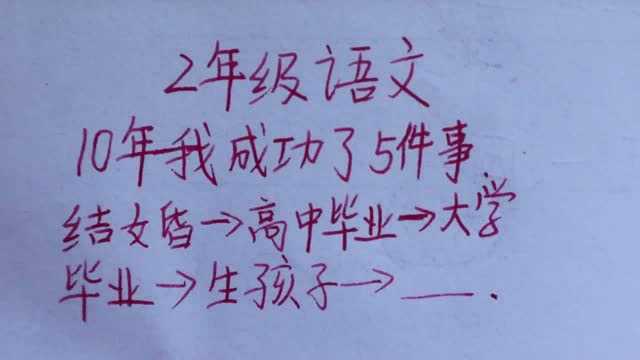 2年级语文
10年我成功了5件事
结文昏→高中毕业→大学
毕业→生孩子→___.